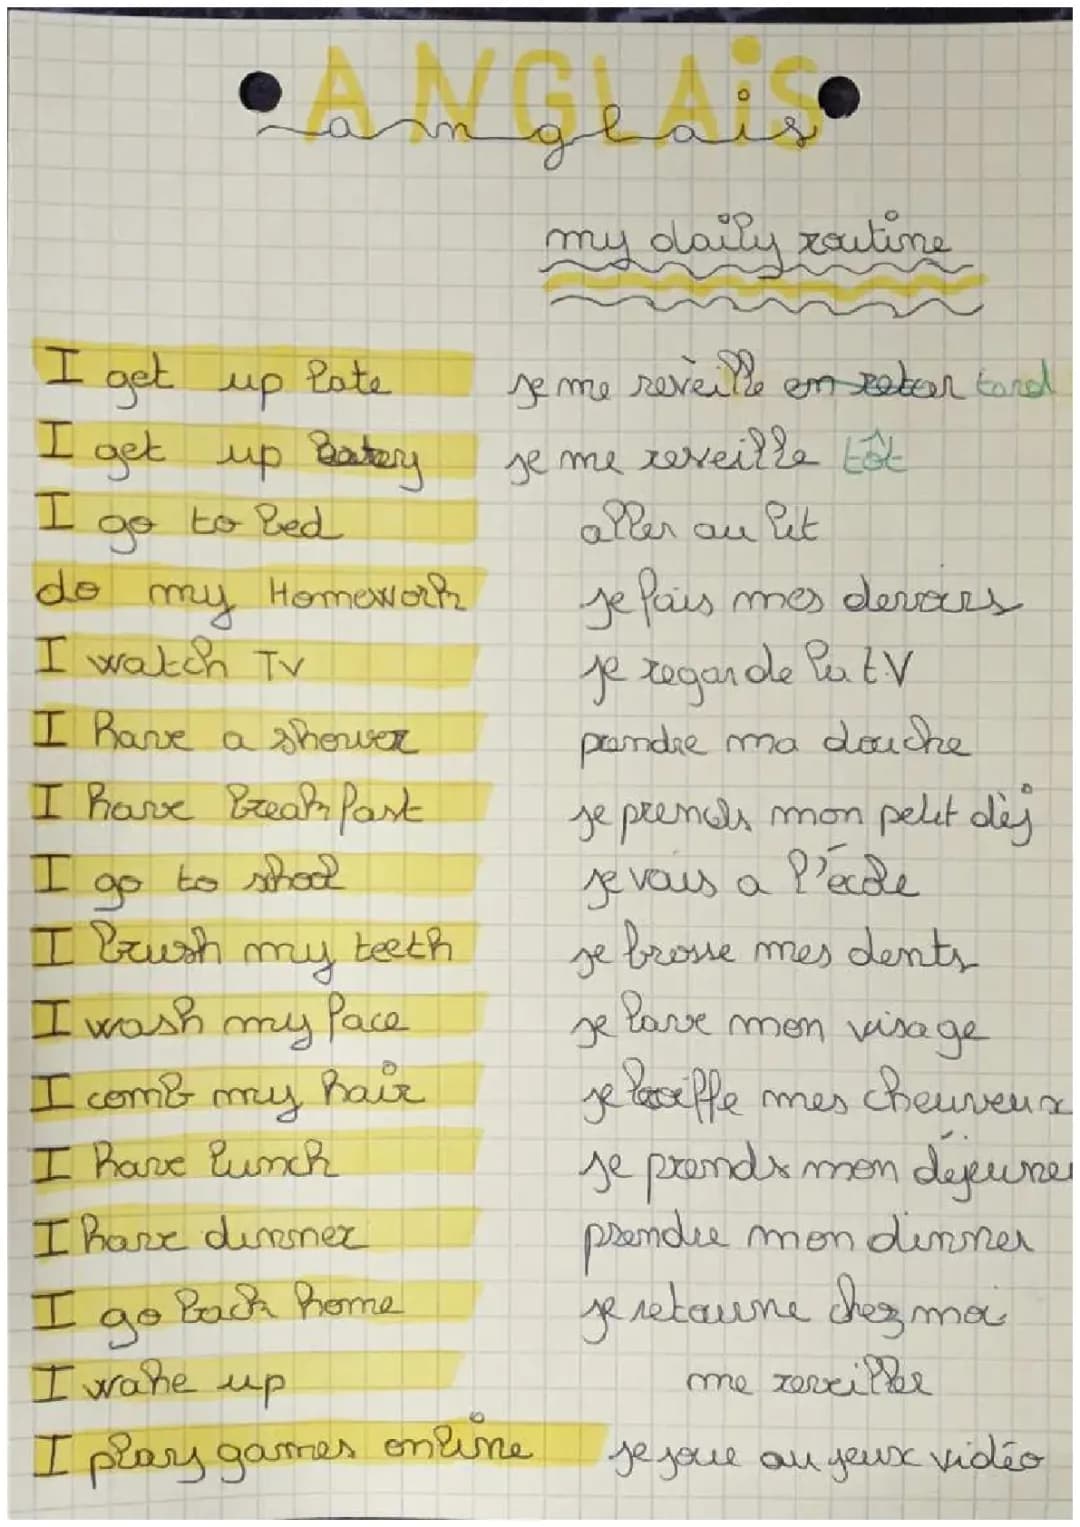 ANGLAiS
anglais
my daily routine
I get up late je me rèveille en retar tard
I get up je me reveille tôt
I go to bed aller au lit
do my Homework je fais mes devoirs
I watch TV je regarde la t.V
I have a shower prendre ma douche
I have breakfast je prends mon petit dèj
I go to shool je vais a l'école
I brush my teeth je brosse mes dents
I wash my face je lave mon visage
I comb my hair je coiffe mes cheuveux
I have lunch je prends mon déjeuner
I have dinner prendre mon dinner
I go back home je retourne chez moi
I wake up me reveiller
I play games online je joue au jeux vidéo